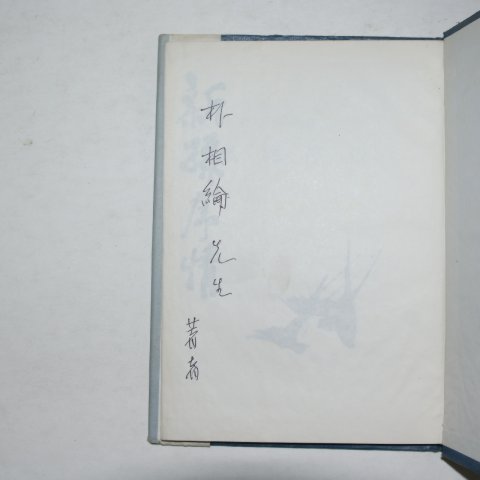 朴相綸 先生
著者